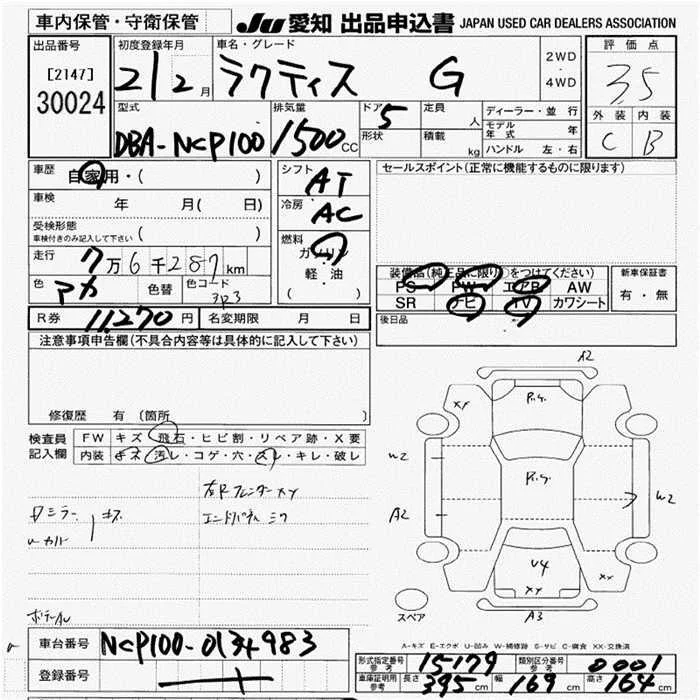 車内保管・守衛保管
JU 愛知 出品申込書 JAPAN USED CAR DEALERS ASSOCIATION
出品番号
[2147]
30024
初度登録年月
21/2月
車名・グレード
ラクティス G
2WD
・
4WD
評価点
3.5
外装 内装
C B
型式
DBA-NCP100
排気量
1500cc
ドア 5
形状
定員 人
積載 kg
ディーラー・並行
モデル年式 年
ハンドル 左・右
車歴
自家用・( )
車検 年 月( 日)
受検形態
車検付きのみ記入して下さい ( )
走行 7万6千287km
色 アカ 色替 色コード 3R3
シフト AT
冷房 AC
燃料
ガソリン
軽・油
( )
セールスポイント(正常に機能するものに限ります)
装備品(純正品に限り○をつけてください)
PS PW エアB AW
SR ナビ TV カワシート
新車保証書
有・無
後日品
R券 11,270円 名変期限 月 日
注意事項申告欄(不具合内容等は具体的に記入して下さい)
修復歴 有(箇所 )
検査員記入欄
FW キズ・飛石・ヒビ割・リペア跡・X要
内装 キズ・汚レ・コゲ・穴・スレ・キレ・破レ
左Rフェンダー XY
エンドパネル
ミラー
A2
XY
P.S.
W2
P.S.
A2
W2
U4
XY
XY
スペア
A3
A-キズ E-エクボ U-凹み W-補修跡 S-サビ C-腐食 XX-交換済
車台番号 NCP100-0134983
登録番号
形式指定番号 参考 15179 類別区分番号 参考 0001
車庫証明用 参考 長さ 395cm 幅 169cm 高さ 164cm